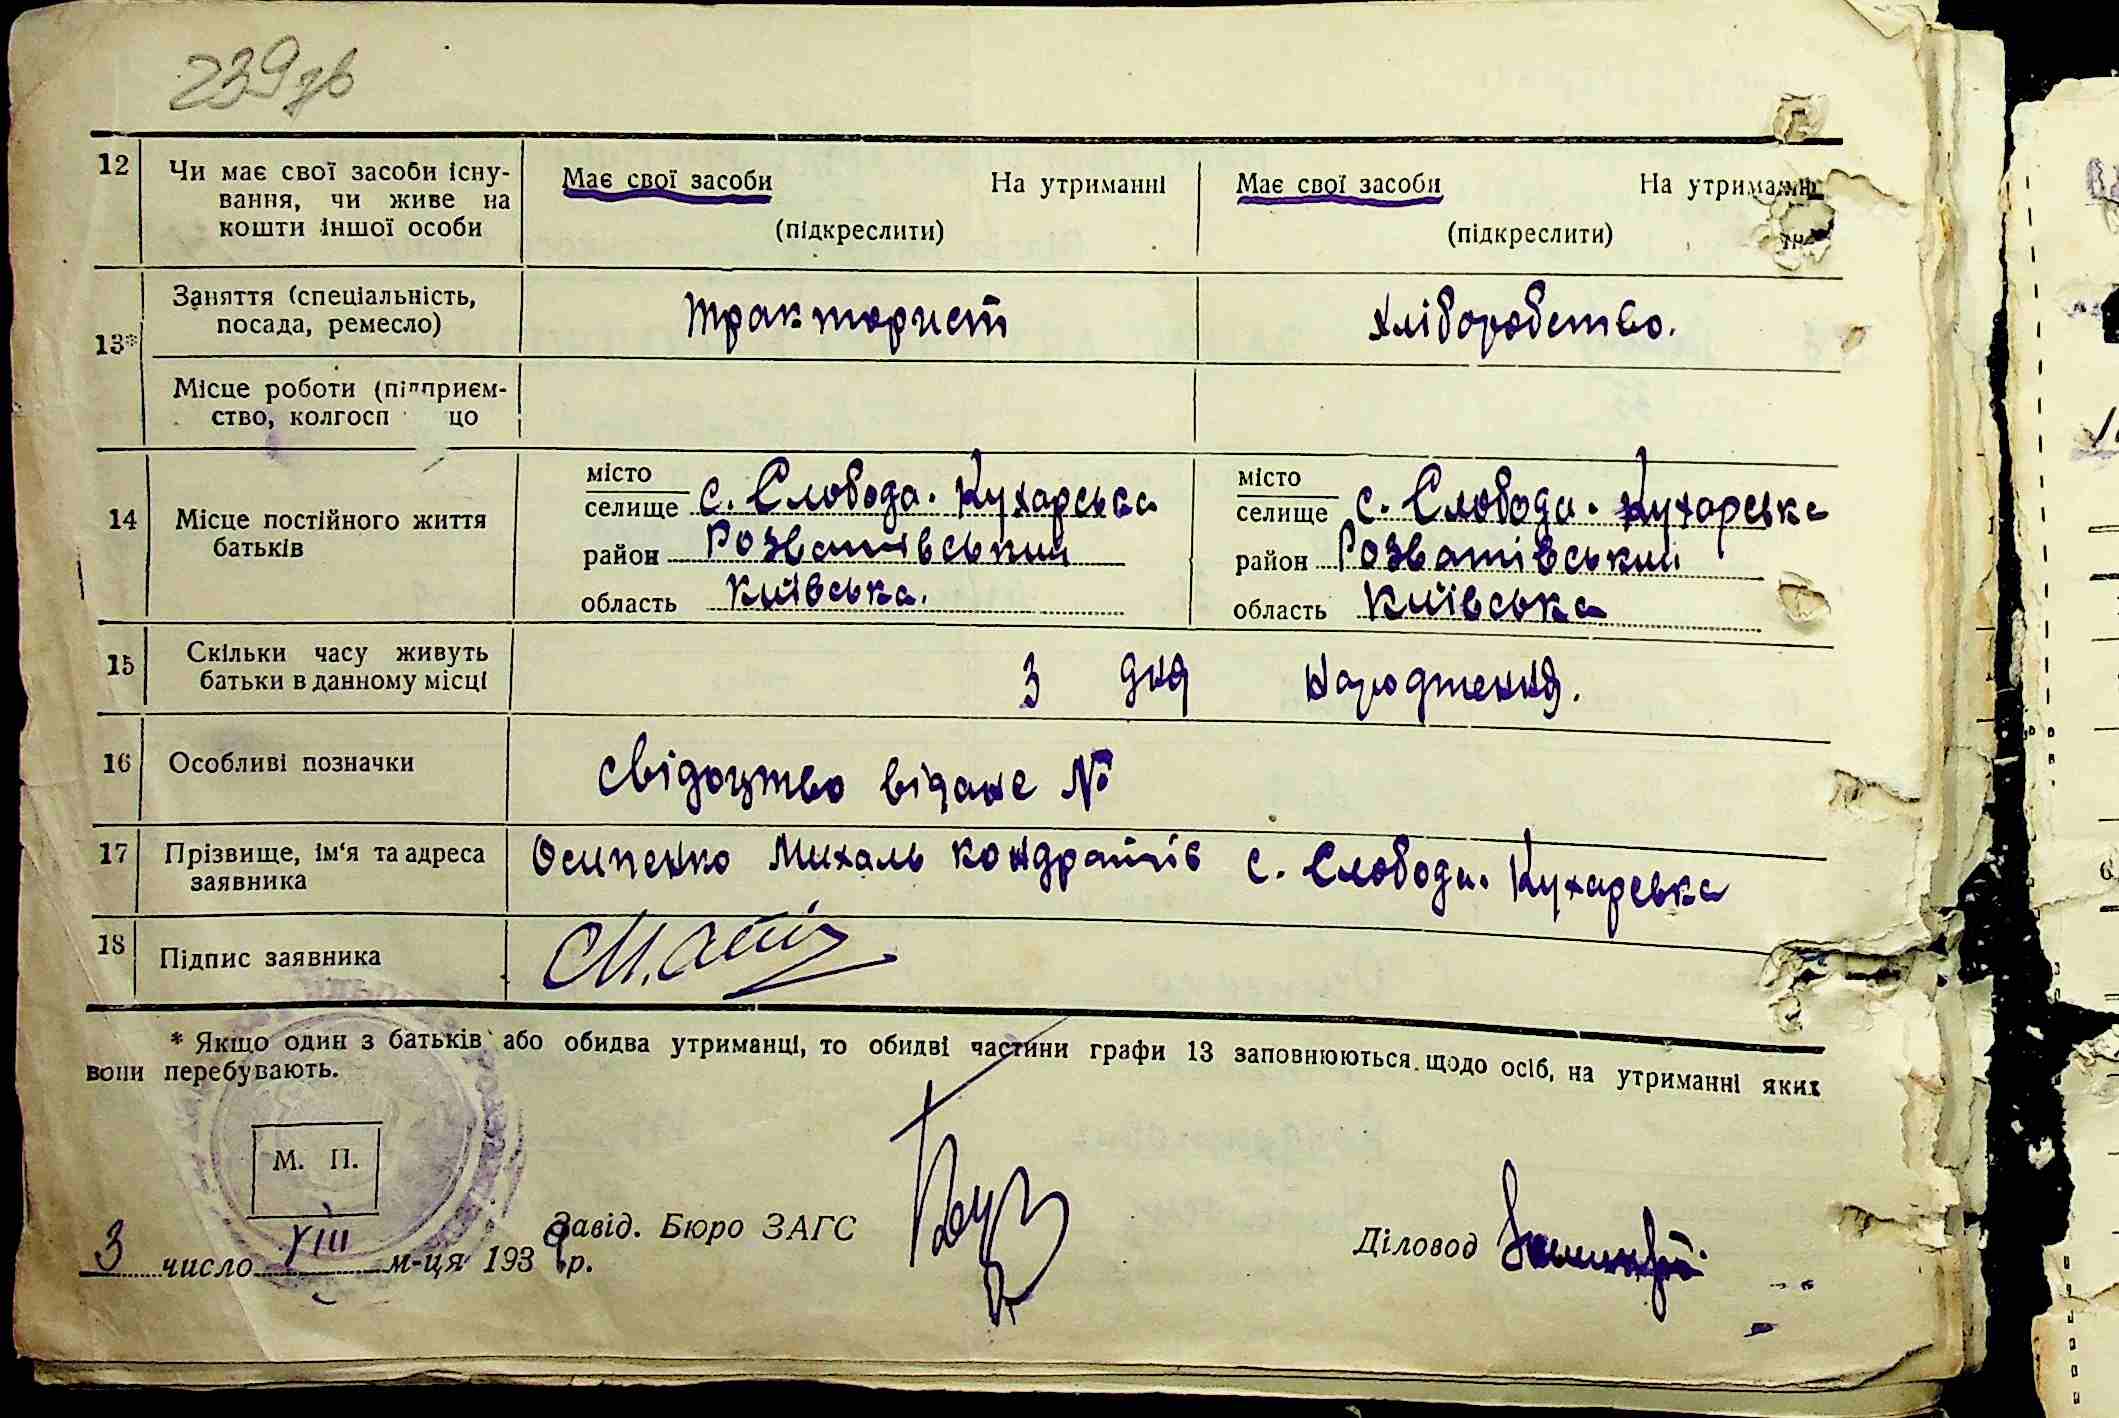 239 зв
12 Чи має свої засоби існу- Має свої засоби На утриманні Має свої засоби На утриманні
вання, чи живе на
кошти іншої особи (підкреслити) (підкреслити)
13* Заняття (спеціальність, тракторист хліборобство.
посада, ремесло)
Місце роботи (підприєм-
ство, колгосп що
14 Місце постійного життя батьків
місто місто
селище с. Слобода. Кухарська селище с. Слобода. Кухарська
район Розватівський район Розватівський
область Київська. область Київська
15 Скільки часу живуть з дня народження.
батьки в данному місці
16 Особливі позначки свідоцтво відане №
17 Прізвище, ім'я та адреса Осипенко Михаль Кондратів с. Слобода. Кухарська
заявника
18 Підпис заявника
* Якщо один з батьків або обидва утриманці, то обидві частини графи 13 заповнюються щодо осіб, на утриманні яких
вони перебувають.
М. П.
3 число VIII м-ця 1939 р. Завід. Бюро ЗАГС Діловод